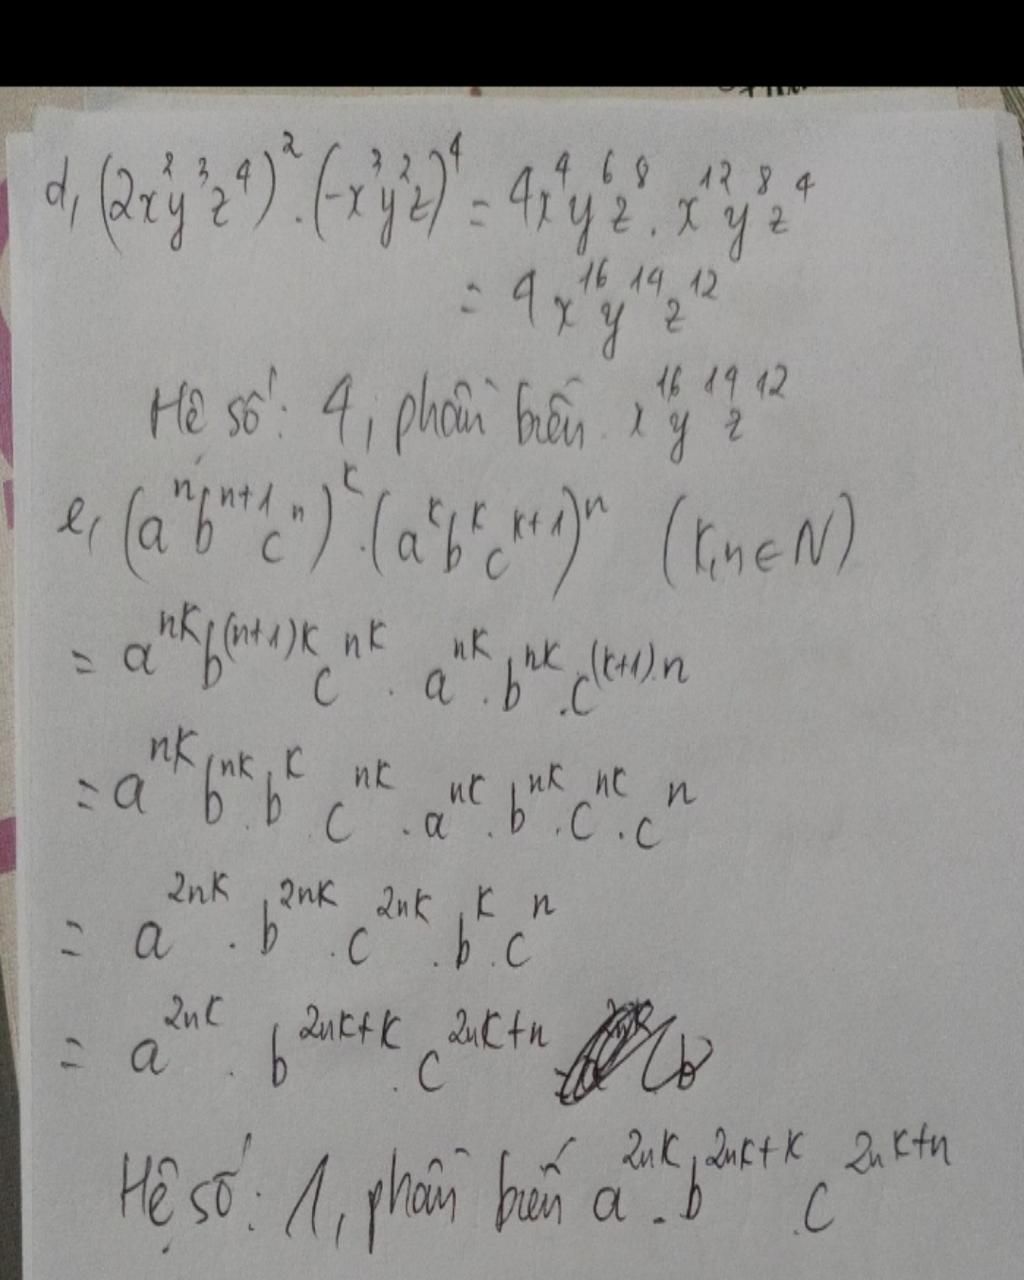 d, (2x²y³z⁴)² . (-x³y²z)⁴ = 4x⁴y⁶z⁸ . x¹²y⁸z⁴
= 4x¹⁶y¹⁴z¹²
Hệ số: 4, phần biến x¹⁶y¹⁴z¹²
e, (aⁿbⁿ⁺¹cⁿ)ᵏ . (aᵏbᵏcᵏ⁺¹)ⁿ (k,n∈N)
= a^{nK} b^{(n+1)K} c^{nK} . a^{nK} . b^{nK} . c^{(k+1).n}
= a^{nK} b^{nK} . b^{K} c^{nK} . a^{nK} . b^{nK} . c^{nK} . c^{n}
= a^{2nK} . b^{2nK} . c^{2nK} . b^{K} . c^{n}
= a^{2nK} . b^{2nK+K} . c^{2nK+n}
Hệ số: 1, phần biến a^{2nK} . b^{2nK+K} . c^{2nK+n}